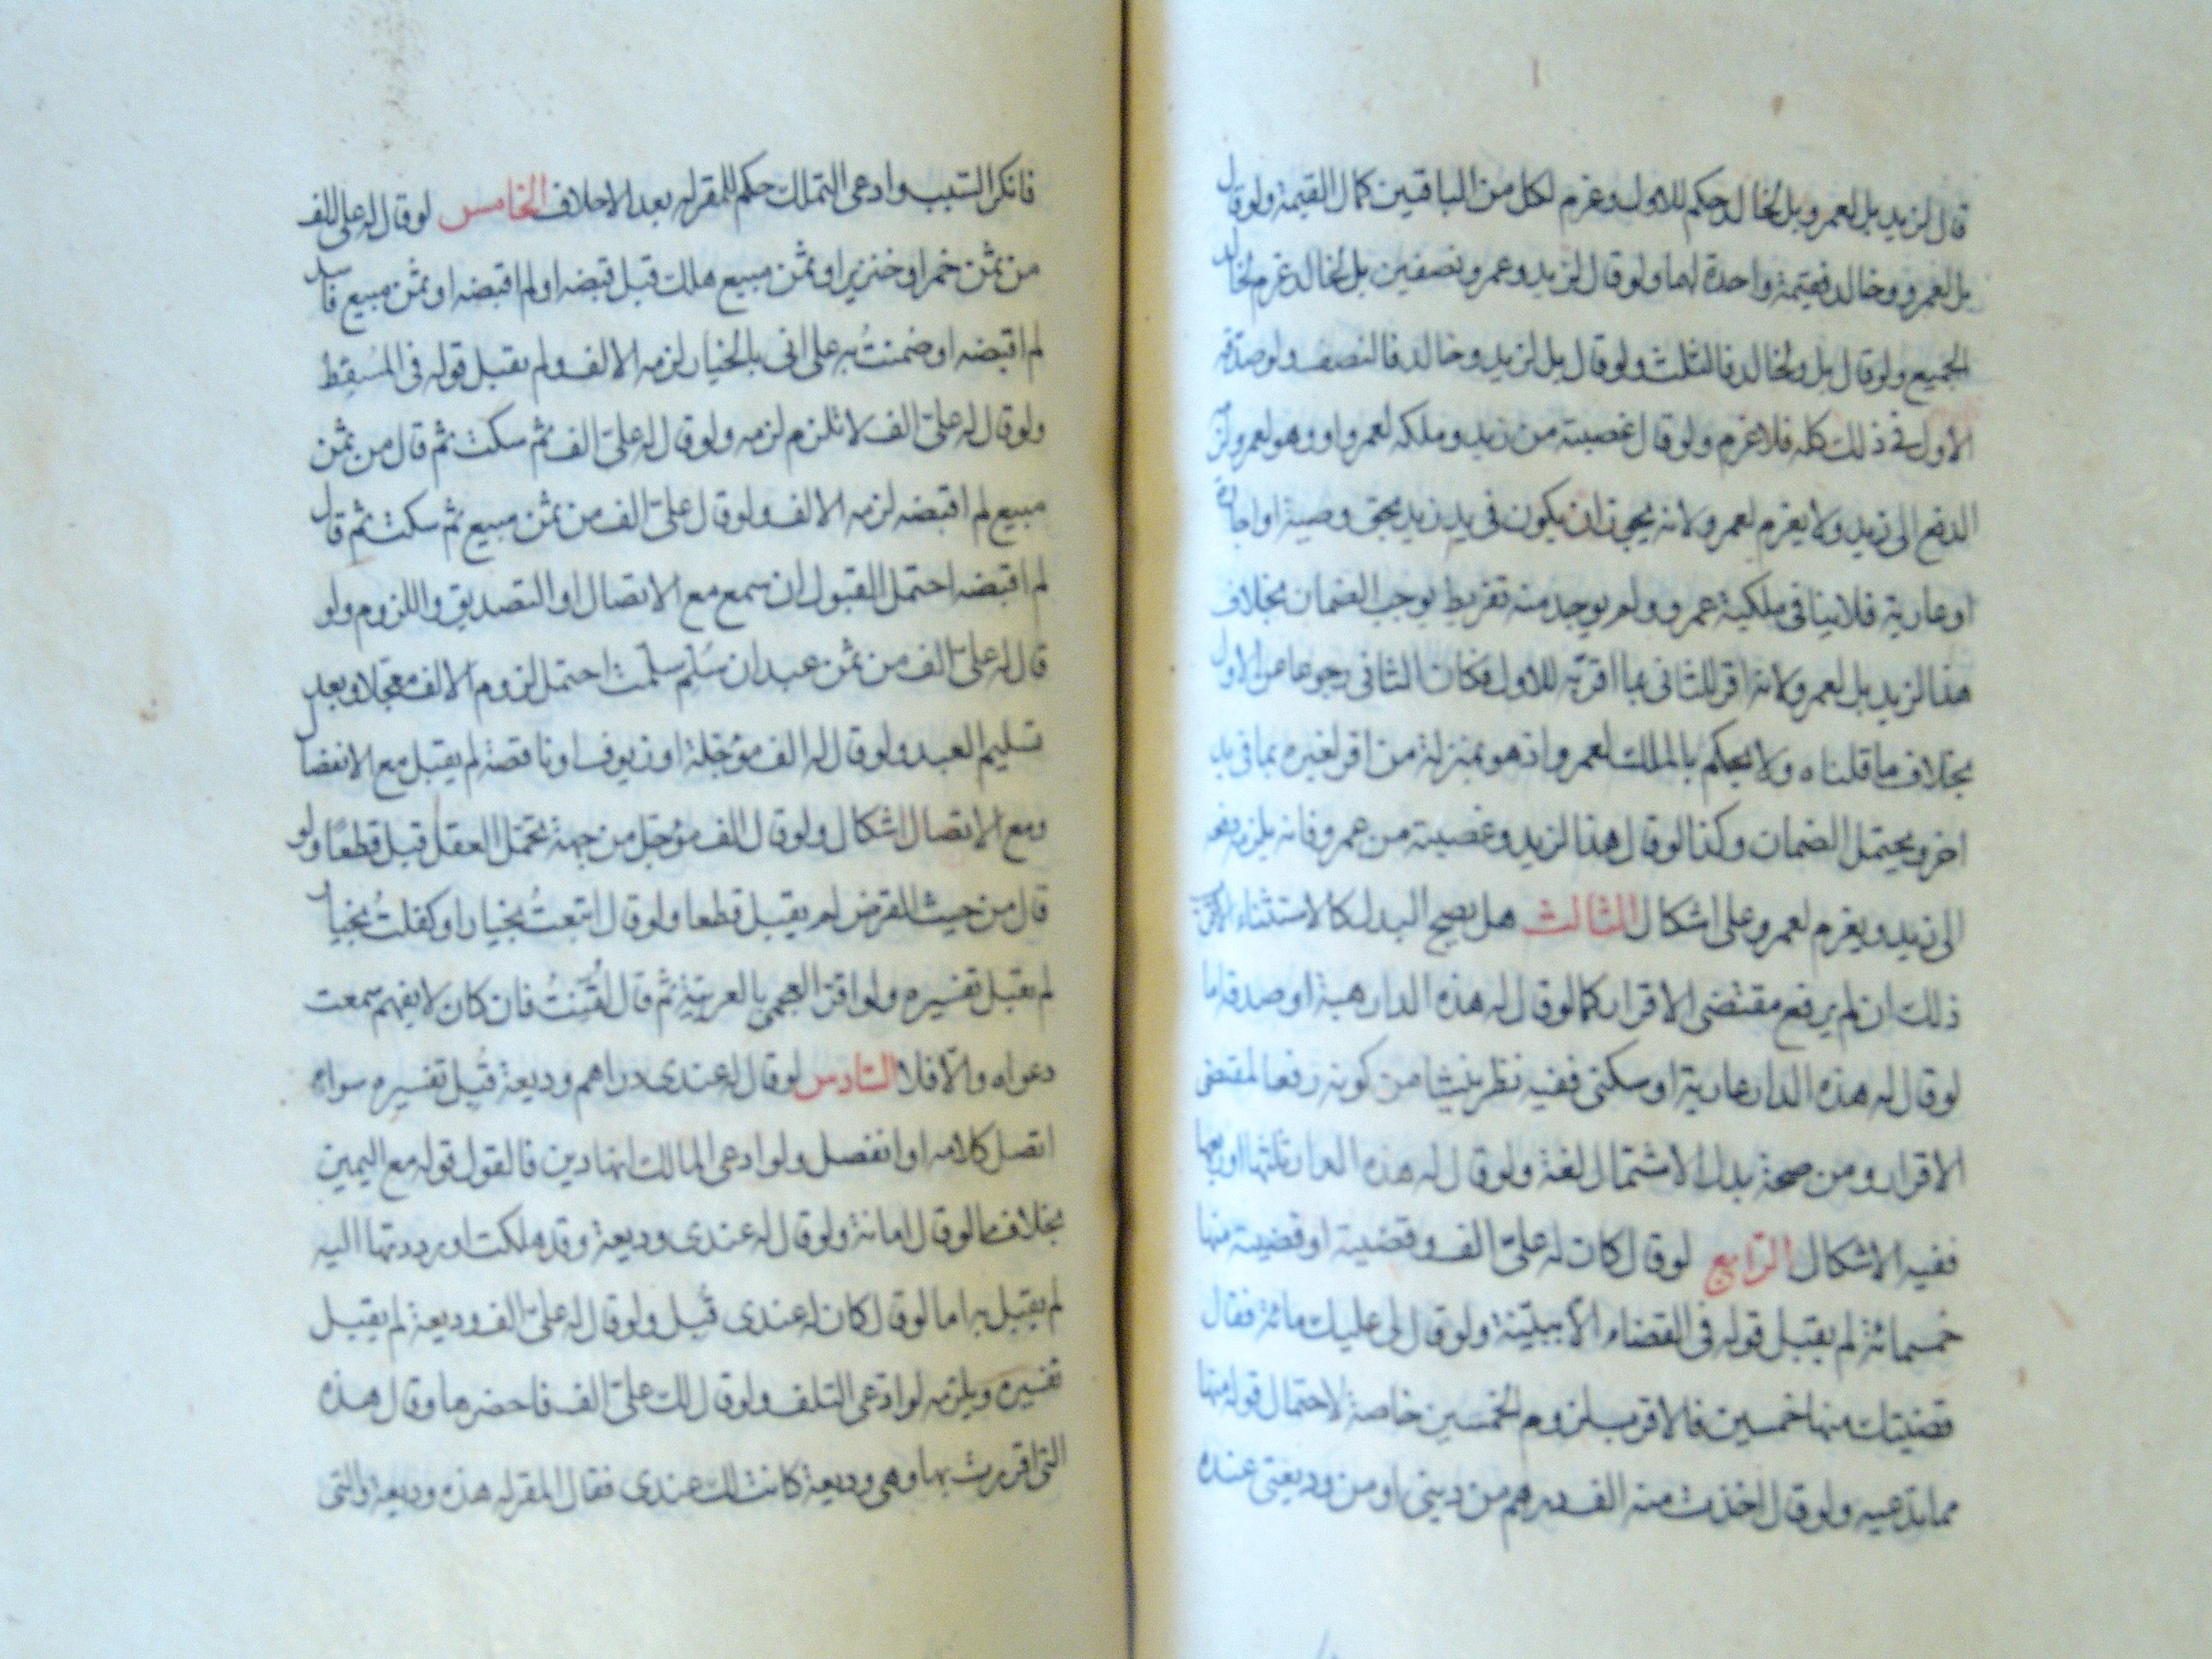 قال لزيد بل لعمرو بل لخالد حكم للاول وغرم لكل من الباقين كمال القيمة ولو قال
بل لعمرو وخالد فقيمة واحدة لهما ولو قال لزيد وعمرو نصفين بل لخالد غرم لخالد
الجميع ولو قال بل ولخالد فالثلث ولو قال بل لزيد وخالد فالنصف ولو صدقه
الاول في ذلك كله فلا غرم ولو قال غصبته من زيد وملكه لعمرو او وهو لعمرو لزمه
الدفع الى زيد ولا يغرم لعمرو لانه يجوز ان يكون في يد زيد بحق وصية او اجارة
او عارية فلا ينافي ملكية عمرو ولم يوجد منه تفريط يوجب الضمان بخلاف
هذا لزيد بل لعمرو لانه اقر للثاني بما اقر به للاول فكان الثاني رجوعا عن الاول
بخلاف ما قلناه ولا يحكم بالملك لعمرو اذ هو بمنزلة من اقر لغيره بما في يد
اخر ويحتمل الضمان وكذا لو قال هذا لزيد وغصبته من عمرو فانه يلزمه دفعه
الى زيد ويغرم لعمرو على اشكال الثالث هل يصح البدل كالاستثناء الاقرب
ذلك ان لم يرفع مقتضى الاقرار كما لو قال له هذه الدار هبة او صدقة اما
لو قال له هذه الدار عارية او سكنى ففيه نظر ينشا من كونه رفعا لمقتضى
الاقرار ومن صحة بدل الاشتمال لغة ولو قال له هذه الدار ثلثها او ربعها
ففيه الاشكال الرابع لو قال كان له علىّ الف وقضيته او قضيته منها
خمسمائة لم يقبل قوله في القضاء الّا ببيّنة ولو قال لى عليك مائة فقال
قضيتك منها خمسين فالاقرب لزوم الخمسين خاصة لاحتمال قوله منها
مما يدّعيه ولو قال اخذت منه الف درهم من ديني او من وديعتى عنده
فانكر السبب وادعى التملك حكم للمقر له بعد الاحلاف الخامس لو قال له على الف
من ثمن خمر او خنزير او ثمن مبيع هلك قبل قبضه او لم اقبضه او ثمن مبيع فاسد
لم اقبضه او ضمنتُ به على انى بالخيار لزمه الالف ولم يقبل قوله فى المُسقِط
ولو قال له علىّ الف لا تلزم لزمه ولو قال له علىّ الف ثم سكت ثم قال من ثمن
مبيع لم اقبضه لزمه الالف ولو قال علىّ الف من ثمن مبيع ثم سكت ثم قال
لم اقبضه احتمل القبول ان سمع مع الاتصال او التصديق واللزوم ولو
قال له علىّ الف من ثمن عبد ان سُلّم سلّمت احتمل لزوم الالف معجلا وبعد
تسليم العبد ولو قال له الف مؤجلة او زيوف او ناقصة لم يقبل مع الانفصال
ومع الاتصال اشكال ولو قال الف مؤجل من جهة تحمّل العقل قبل قطعًا ولو
قال من حيث القرض لم يقبل قطعا ولو قال ابتعتُ بخيار او كفلتُ بخيار
لم يقبل تفسيره ولو اقرّ العجمي بالعربيّة ثم قال لُقّنتُ فان كان لا يفهم سمعت
دعواه والّا فلا السّادس لو قال له عندى دراهم وديعة قُبل تفسيره سواء
اتصل كلامه او انفصل ولو ادعى المالك انها دين فالقول قوله مع اليمين
بخلاف ما لو قال امانة ولو قال له عندى وديعة وقد هلكت او رددتها اليه
لم يقبل به اما لو قال كان له عندى قُبل ولو قال له علىّ الف وديعة لم يقبل
تفسيره ويلزمه لو ادعى التلف ولو قال لك علىّ الف فاحضرها وقال هذه
التى اقررت بها وهى وديعة كانت لك عندى فقال المقر له هذه وديعة والتى